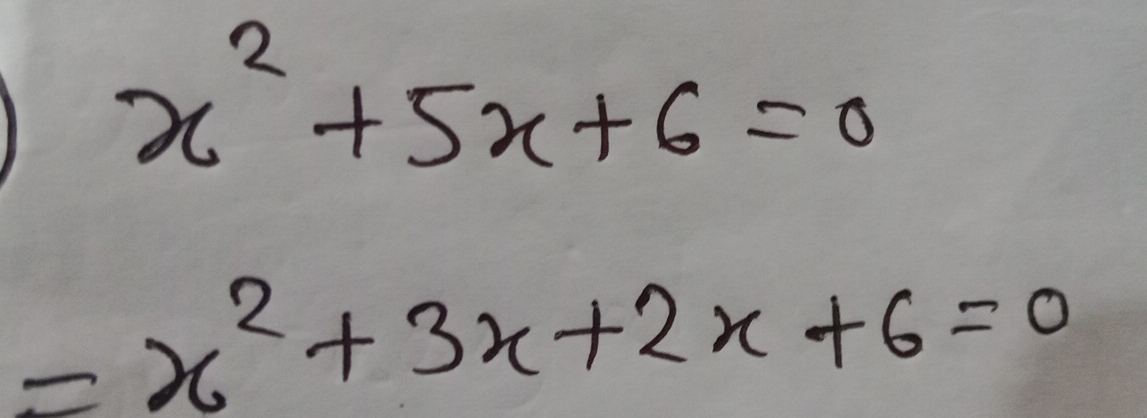 ) x² + 5x + 6 = 0
= x² + 3x + 2x + 6 = 0